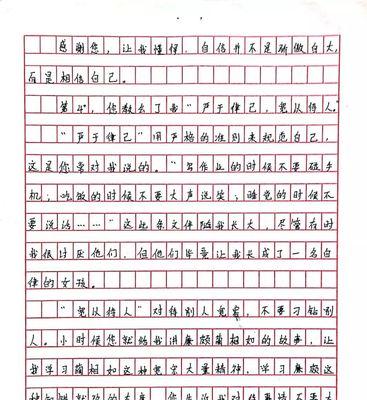 感谢您，让我懂得，自信并不是骄傲自大，
而是相信自己。
第4，你教会了我“严于律己，宽以待人。”
“严于律己”用严格的准则来规范自己，
这是你常对我说的。“写作业的时候不要碰手
机；吃饭的时候不要大声说笑；睡觉的时候不
要说话……”这些条文伴随我长大，尽管有时
我很讨厌他们，但他们毕竟让我长成了一名自
律的女孩。
“宽以待人”对待别人宽容，不要刁钻别
人。小时候您就给我讲廉颇蔺相如的故事，让
我学习蔺相如这种宽宏大量精神，学习廉颇这
种知错就改的态度。你告诉我对待事情不要太